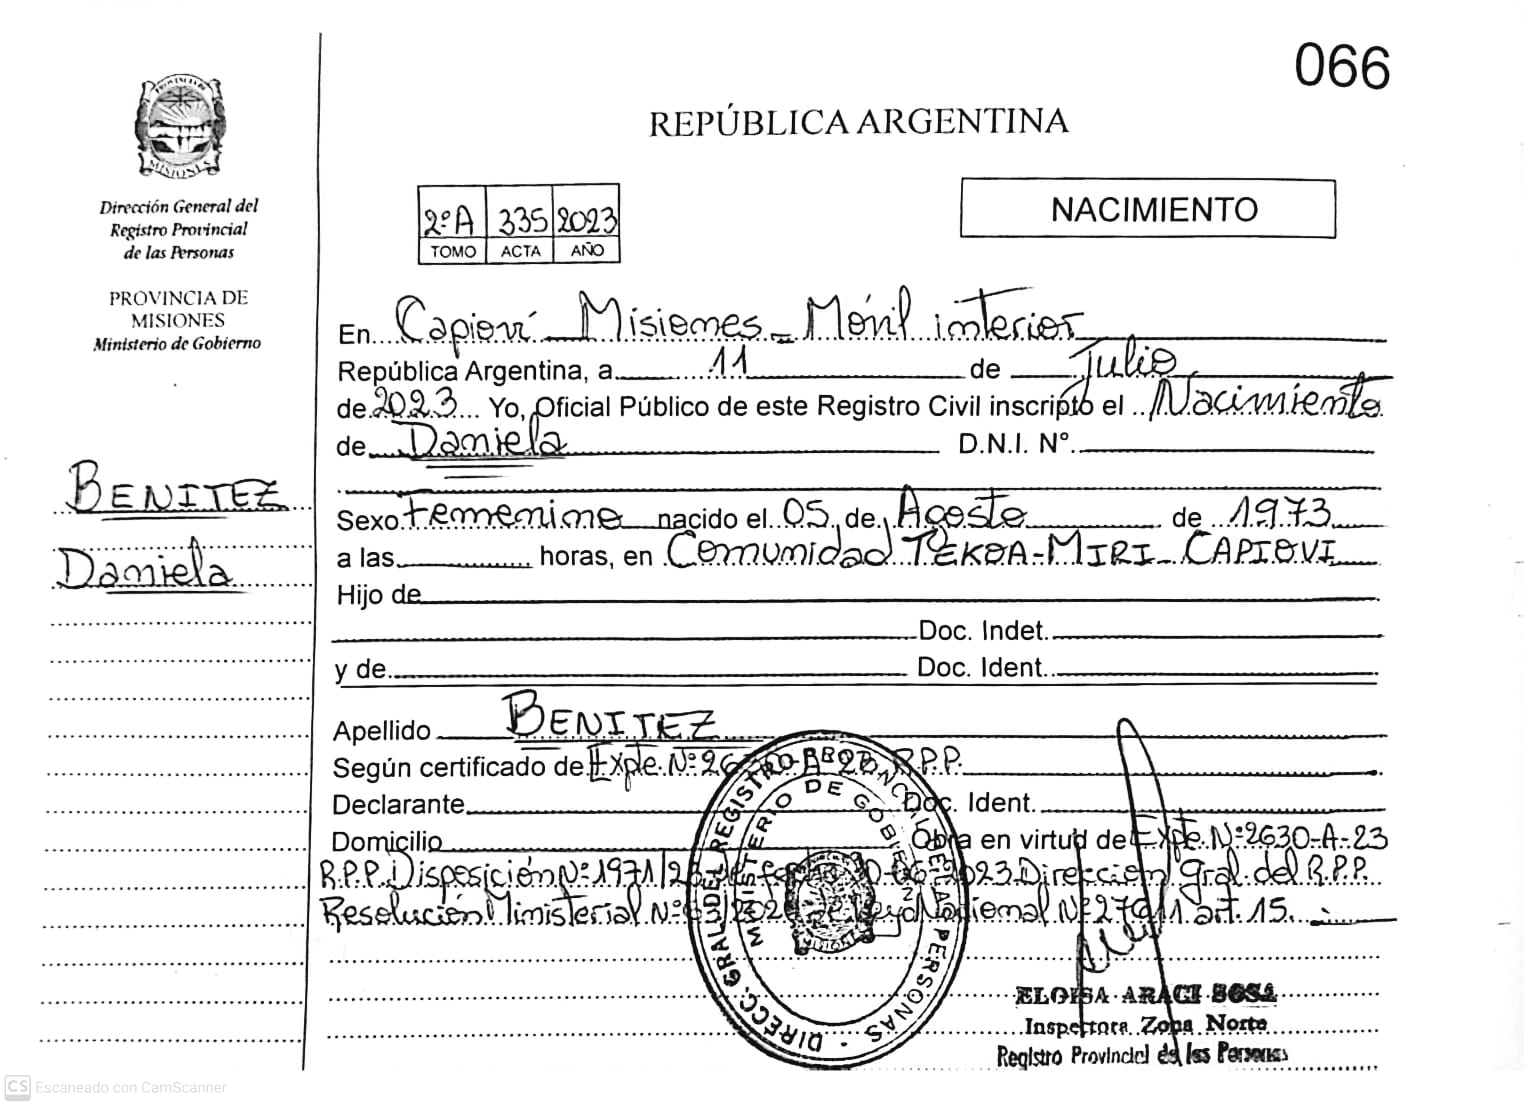 066
PROVINCIA DE
MISIONES
REPÚBLICA ARGENTINA
Dirección General del
Registro Provincial
de las Personas
PROVINCIA DE
MISIONES
Ministerio de Gobierno
2º A 335 2023
TOMO ACTA AÑO
NACIMIENTO
En Capioví Misiones - Móvil interior
República Argentina, a 11 de Julio
de 2023 Yo, Oficial Público de este Registro Civil inscripto el Nacimiento
de Daniela D.N.I. Nº.
BENITEZ
Daniela
Sexo femenino nacido el 05 de Agosto de 1973
a las horas, en Comunidad TEKOA-MIRI- CAPIOVI
Hijo de
Doc. Indet.
y de Doc. Ident.
Apellido BENITEZ
Según certificado de Expte. Nº R.P.P.
Declarante Doc. Ident.
Domicilio Obra en virtud de Expte. Nº 2630-A-23
R.P.P. Disposición Nº 1971/23 de 2023 Dirección Gral. del R.P.P.
Resolución Ministerial Nº Nacional Nº art. 15.
DIRECC. GRAL. DEL REGISTRO PROVINCIAL DE LAS PERSONAS
MINISTERIO DE GOBIERNO
MISIONES
ELOISA ARACI SOSA
Inspectora Zona Norte
Registro Provincial de las Personas
CS Escaneado con CamScanner